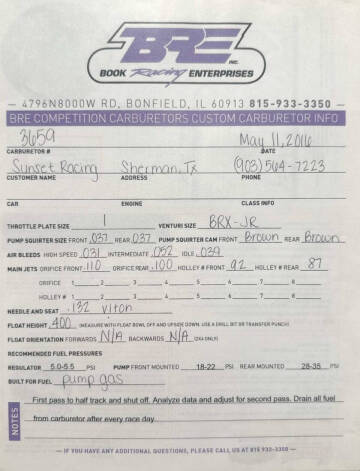 BRE INC.
BOOK Racing ENTERPRISES
— 4796N8000W RD, BONFIELD, IL 60913 815-933-3350 —
BRE COMPETITION CARBURETORS CUSTOM CARBURETOR INFO
3659 May 11, 2016
CARBURETOR # DATE
Sunset Racing Sherman, Tx (903) 564-7223
CUSTOMER NAME ADDRESS PHONE
CAR ENGINE CLASS INFO
THROTTLE PLATE SIZE 1 VENTURI SIZE BRX-JR
PUMP SQUIRTER SIZE FRONT .037 REAR .037 PUMP SQUIRTER CAM FRONT Brown REAR Brown
AIR BLEEDS HIGH SPEED .031 INTERMEDIATE .052 IDLE .039
MAIN JETS ORIFICE FRONT .110 ORIFICE REAR .100 HOLLEY # FRONT 92 HOLLEY # REAR 87
ORIFICE 1 2 3 4 5 6 7 8
HOLLEY # 1 2 3 4 5 6 7 8
NEEDLE AND SEAT .132 viton
FLOAT HEIGHT .400 (MEASURE WITH FLOAT BOWL OFF AND UPSIDE DOWN. USE A DRILL BIT OR TRANSFER PUNCH)
FLOAT ORIENTATION FORWARDS N/A BACKWARDS N/A
RECOMMENDED FUEL PRESSURES
REGULATOR 5.0-5.5 PSI PUMP FRONT MOUNTED 18-22 PSI REAR MOUNTED 28-35 PSI
BUILT FOR FUEL pump gas
NOTES
First pass to half track and shut off. Analyze data and adjust for second pass. Drain all fuel
from carburetor after every race day.
— IF YOU HAVE ANY ADDITIONAL QUESTIONS, PLEASE CALL US AT 815 933-3350 —